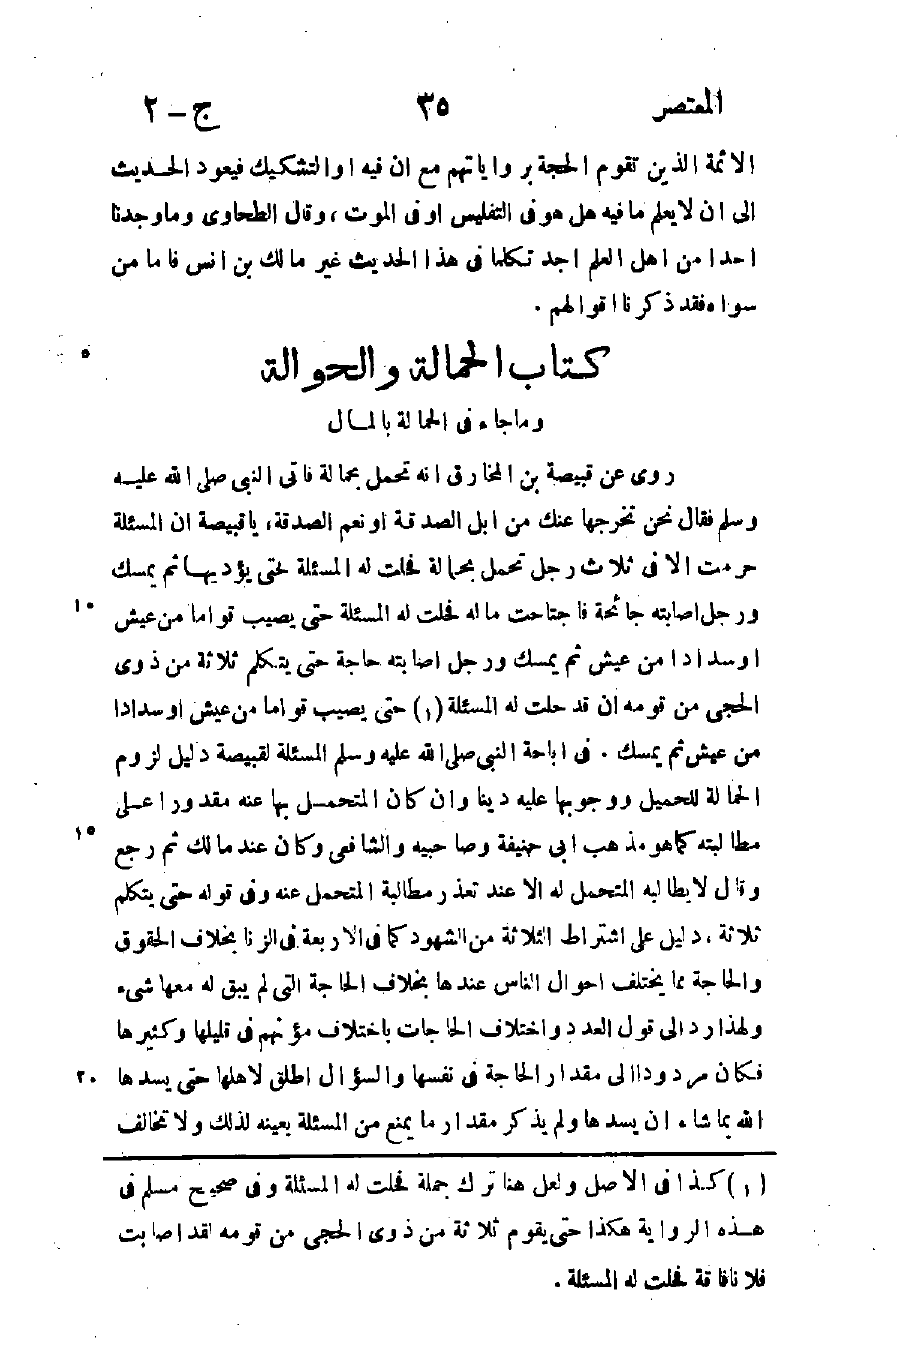 المعتصر ٣٥ ج - ٢
الائمة الذين تقوم الحجة برواياتهم مع ان فيه او التشكيك فيعود الحديث
الى ان لا يعلم ما فيه هل هو فى التفليس او فى الموت ، وقال الطحاوى وما وجدنا
احدا من اهل العلم اجد تكلما فى هذا الحديث غير مالك بن انس فاما من
سواه فقد ذكرنا اقوالهم .
كتاب الحمالة والحوالة
٥
وما جاء فى الحمالة بالمال
روى عن قبيصة بن المخارق انه تحمل بحمالة فاتى النبى صلى الله عليه
وسلم فقال نحن نخرجها عنك من ابل الصدقة او نعم الصدقة، ياقبيصة ان المسئلة
حرمت الا فى ثلاث رجل تحمل بحمالة فحلت له المسئلة حتى يؤديها ثم يمسك
ورجل اصابته جائحة فاجتاحت ماله فحلت له المسئلة حتى يصيب قواما من عيش ١٠
او سدادا من عيش ثم يمسك ورجل اصابته حاجة حتى يتكلم ثلاثة من ذوى
الحجى من قومه ان قد حلت له المسئلة (١) حتى يصيب قواما من عيش او سدادا
من عيش ثم يمسك . فى اباحة النبى صلى الله عليه وسلم المسئلة لقبيصة دليل لزوم
الحمالة للحميل ووجوبها عليه دينا وان كان المتحمل بها عنه مقدورا على
مطالبته كما هو مذهب ابى حنيفة وصاحبيه والشافعى وكان عند مالك ثم رجع ١٥
وقال لا يطالبه المتحمل له الا عند تعذر مطالبة المتحمل عنه وفى قوله حتى يتكلم
ثلاثة ، دليل على اشتراط الثلاثة من الشهود كما فى الاربعة فى الزنا بخلاف الحقوق
والحاجة مما يختلف احوال الناس عندها بخلاف الحاجة التى لم يبق له معها شىء
ولهذا رد الى قول العدد واختلاف الحاجات باختلاف مؤنهم فى قليلها وكثيرها
فكان مردودا الى مقدار الحاجة فى نفسها والسؤال اطلق لاهلها حتى يسدها ٢٠
الله بما شاء ان يسدها ولم يذكر مقدار ما يمنع من المسئلة بعينه لذلك ولا تخالف
(١) كذا فى الاصل ولعل هنا ترك جملة فحلت له المسئلة وفى صحيح مسلم فى
هذه الرواية هكذا حتى يقوم ثلاثة من ذوى الحجى من قومه لقد اصابت
فلانا فاقة فحلت له المسئلة .